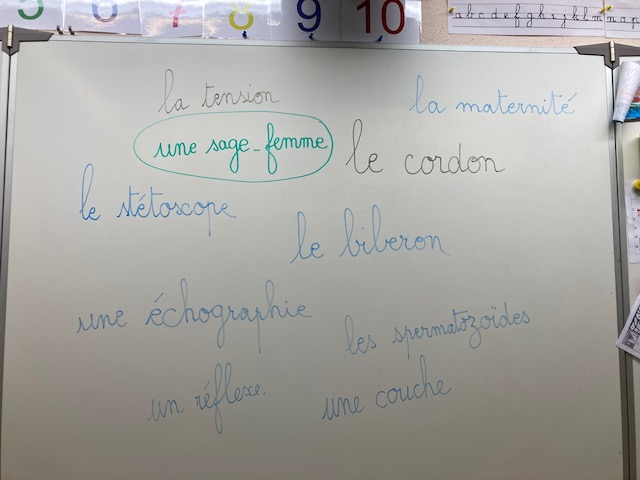 5 6 7 8 9 10
a b c d e f g h i j k l m n o p
la tension
la maternité
une sage-femme
le cordon
le stétoscope
le biberon
une échographie
les spermatozoïdes
un réflexe.
une couche